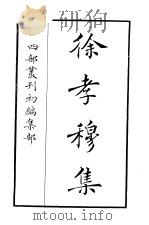 徐孝穆集
四部叢刊初編集部
mtoou.info